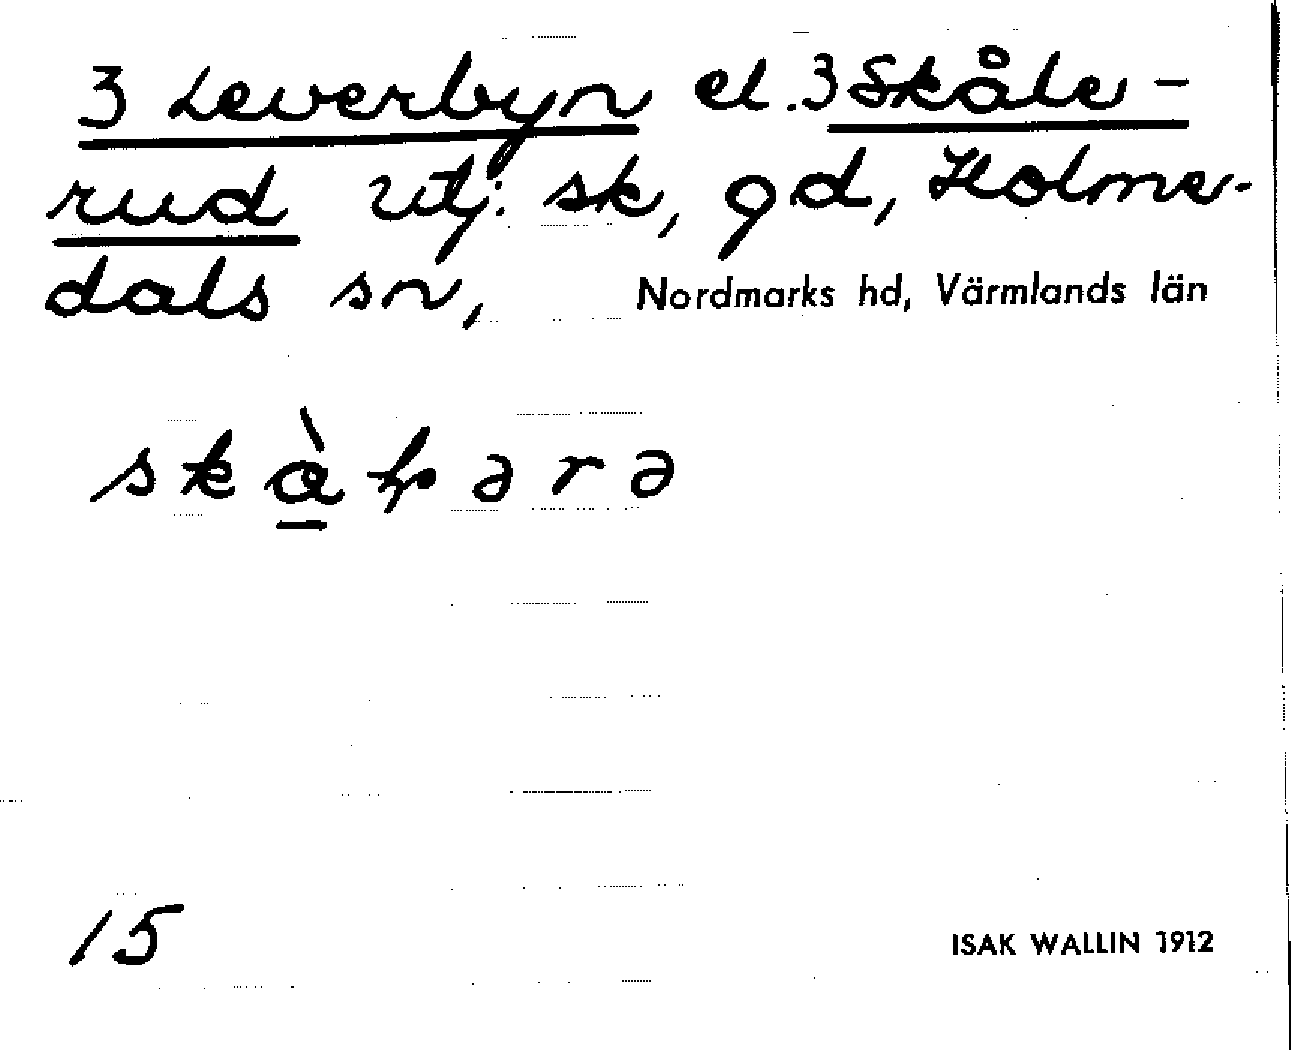 3 Leverbyn el. 3 Skåle-
rud Utj. sk, gd, Holme-
dals sn, Nordmarks hd, Värmlands län
skàpərə
15
ISAK WALLIN 1912